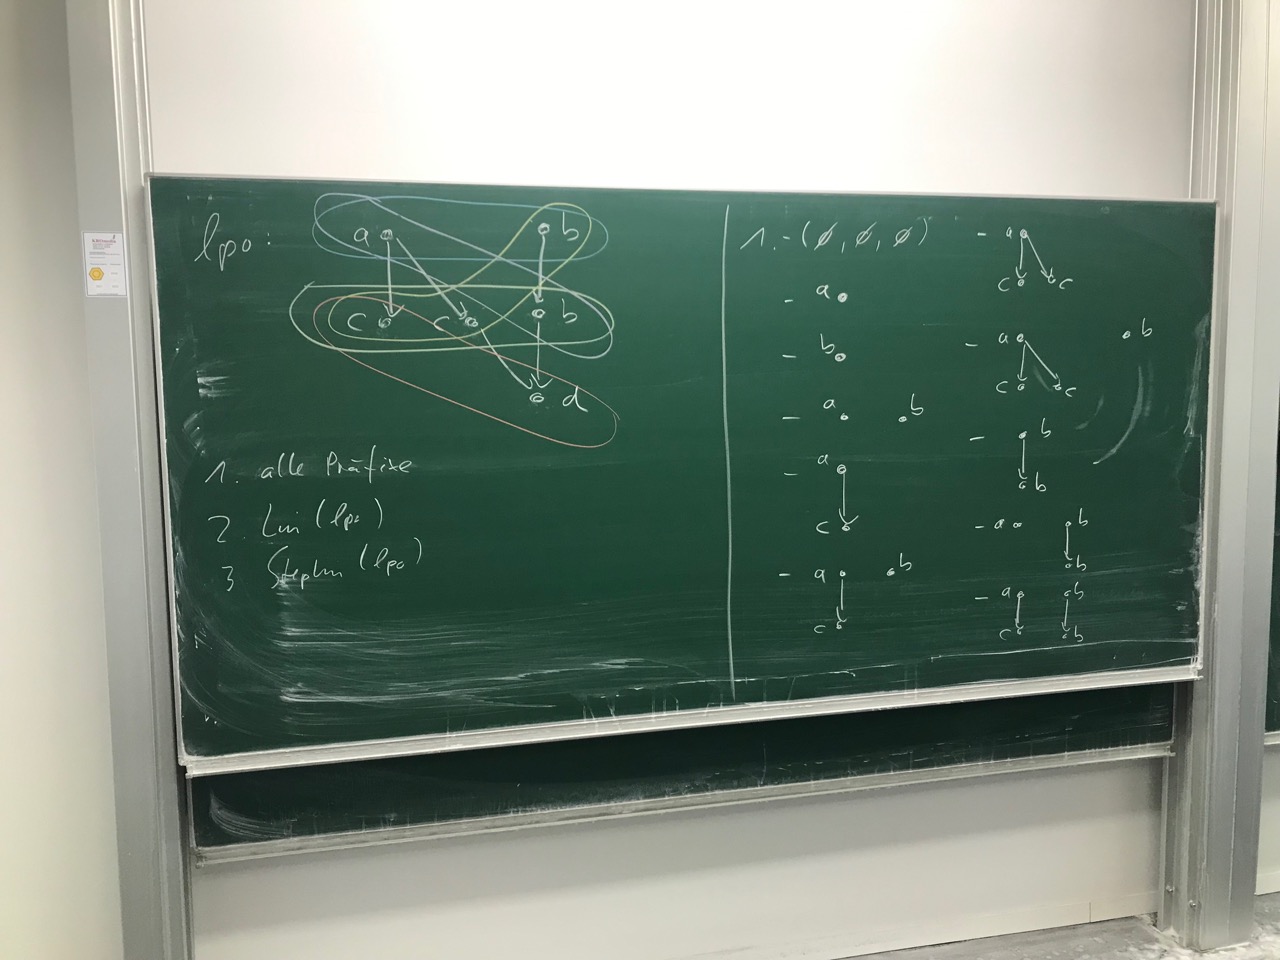 lpo:
a b
c c b
d
1. alle Präfixe
2. Lin (lpo)
3 Steplin (lpo)
1. - (∅, ∅, ∅)
- a
- b
- a b
- a
c
- a b
c
- a
c c
- a b
c c
- b
b
- a b
b
- a b
c b